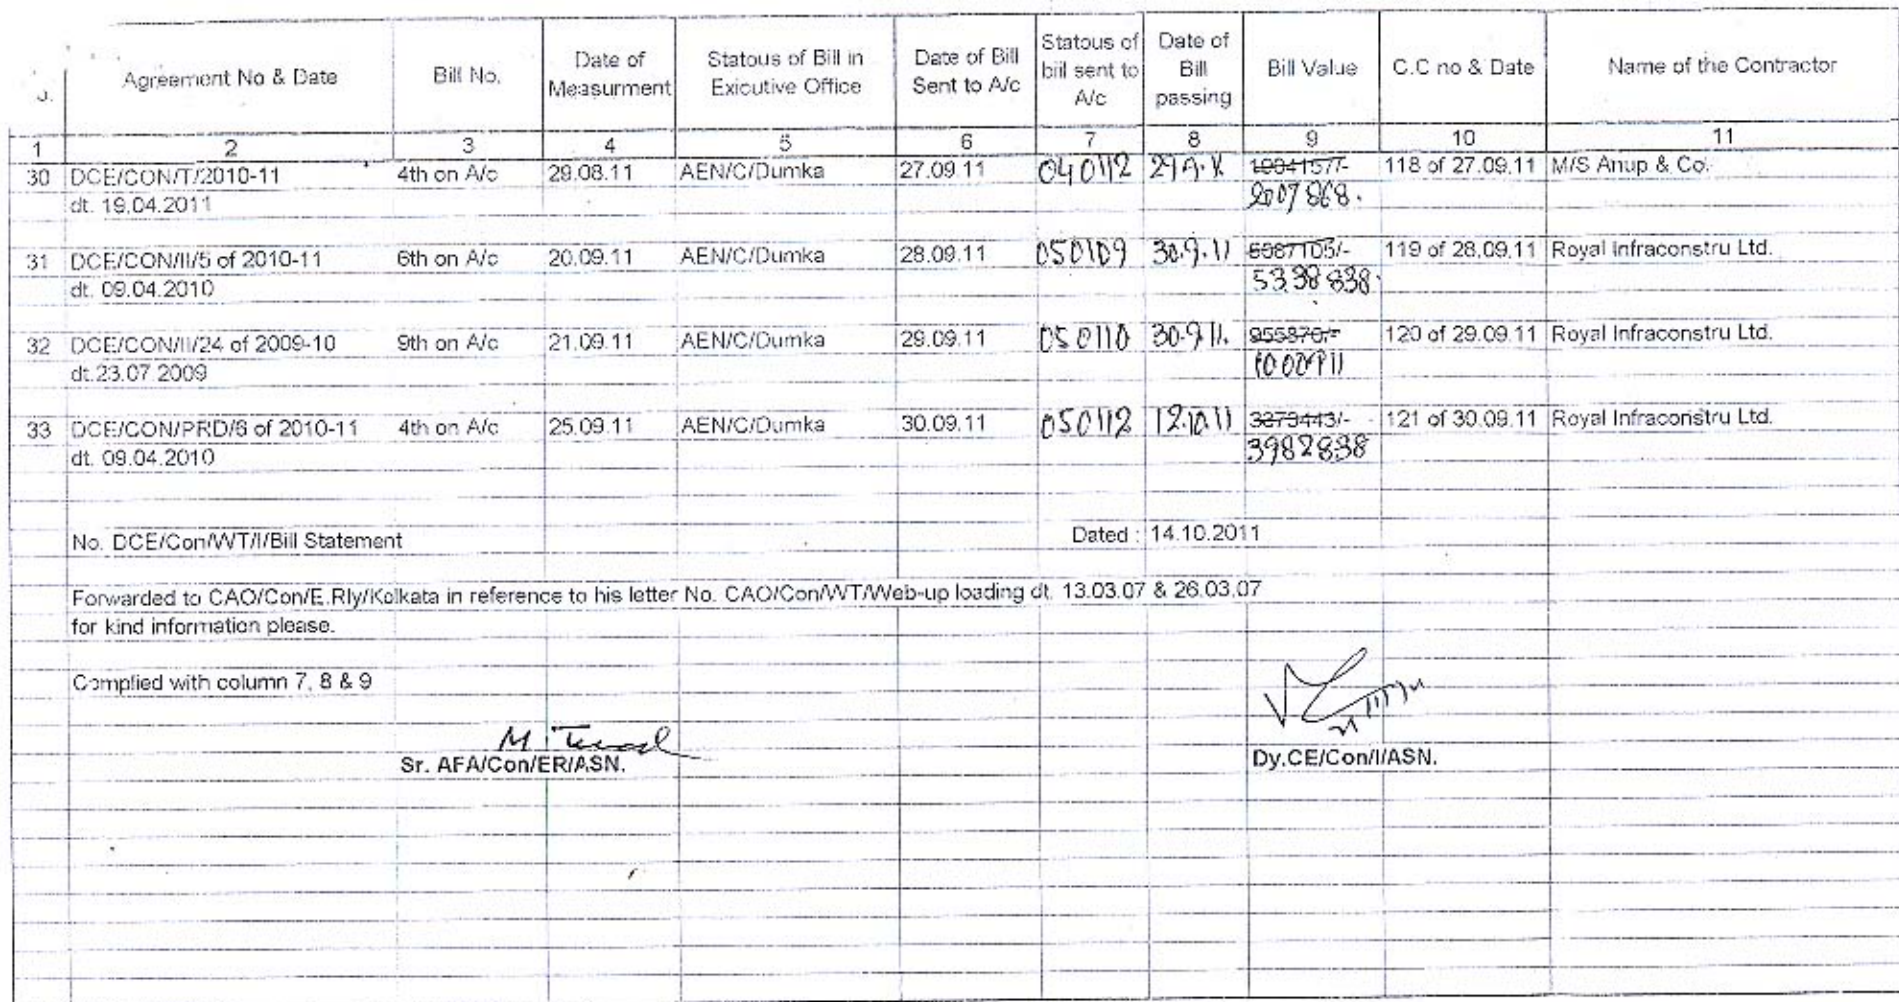 Agreement No & Date Bill No. Date of Measurment Statous of Bill in Exicutive Office Date of Bill Sent to A/c Statous of bill sent to A/c Date of Bill passing Bill Value C.C no & Date Name of the Contractor
1 2 3 4 5 6 7 8 9 10 11
30 DCE/CON/T/2010-11 4th on A/c 29.08.11 AEN/C/Dumka 27.09.11 040112 118 of 27.09.11 M/S Anup & Co.
dt. 19.04.2011
31 DCE/CON/II/5 of 2010-11 6th on A/c 20.09.11 AEN/C/Dumka 28.09.11 050109 30.9.11 119 of 28.09.11 Royal Infraconstru Ltd.
dt. 09.04.2010 5338838.
32 DCE/CON/II/24 of 2009-10 9th on A/c 21.09.11 AEN/C/Dumka 29.09.11 050110 30.9.11. 120 of 29.09.11 Royal Infraconstru Ltd.
dt.23.07 2009
33 DCE/CON/PRD/6 of 2010-11 4th on A/c 25.09.11 AEN/C/Dumka 30.09.11 050112 12.10.11 3273443/- 121 of 30.09.11 Royal Infraconstru Ltd.
dt. 09.04.2010 3982838
No. DCE/Con/WT/I/Bill Statement Dated : 14.10.2011
Forwarded to CAO/Con/E.Rly/Kolkata in reference to his letter No. CAO/Con/WT/Web-up loading dt. 13.03.07 & 26.03.07
for kind information please.
Complied with column 7, 8 & 9
Sr. AFA/Con/ER/ASN. Dy.CE/Con/I/ASN.